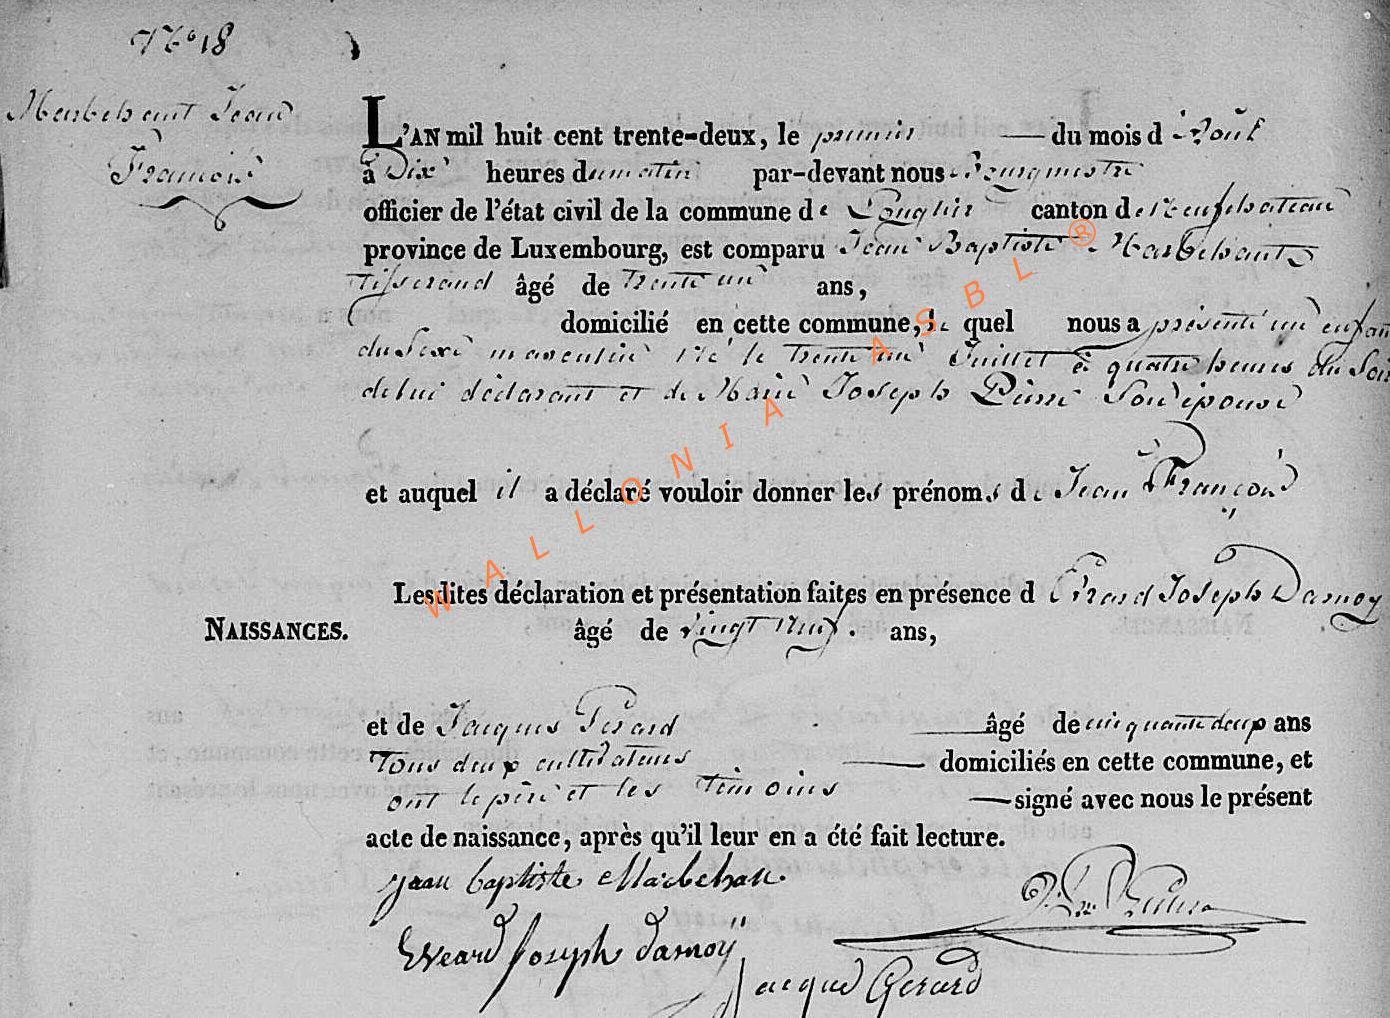 N° 18
Marbehant Jean
François
L'AN mil huit cent trente-deux, le premier du mois d'Aout
à Dix heures du matin par-devant nous Bourgmestre
officier de l'état civil de la commune de Longlier canton de Neufchateau
province de Luxembourg, est comparu Jean Baptiste Marbehant
tisserand âgé de trente un ans,
domicilié en cette commune, le quel nous a présenté un enfant
du Sexe masculin né le trente un Juillet à quatre heures du Soir
de lui déclarant et de Marie Joseph Pierre Son épouse
et auquel il a déclaré vouloir donner les prénoms de Jean François
Lesdites déclaration et présentation faites en présence d'Evrard Joseph Damoy
NAISSANCES. âgé de vingt neuf ans,
et de Jacques Gérard âgé de cinquante deux ans
Tous deux cultivateurs domiciliés en cette commune, et
ont le père et les témoins signé avec nous le présent
acte de naissance, après qu'il leur en a été fait lecture.
jean baptiste Marbehan
Evrard joseph damoÿ
jacque Gerard
WALLONIA ASBL ®